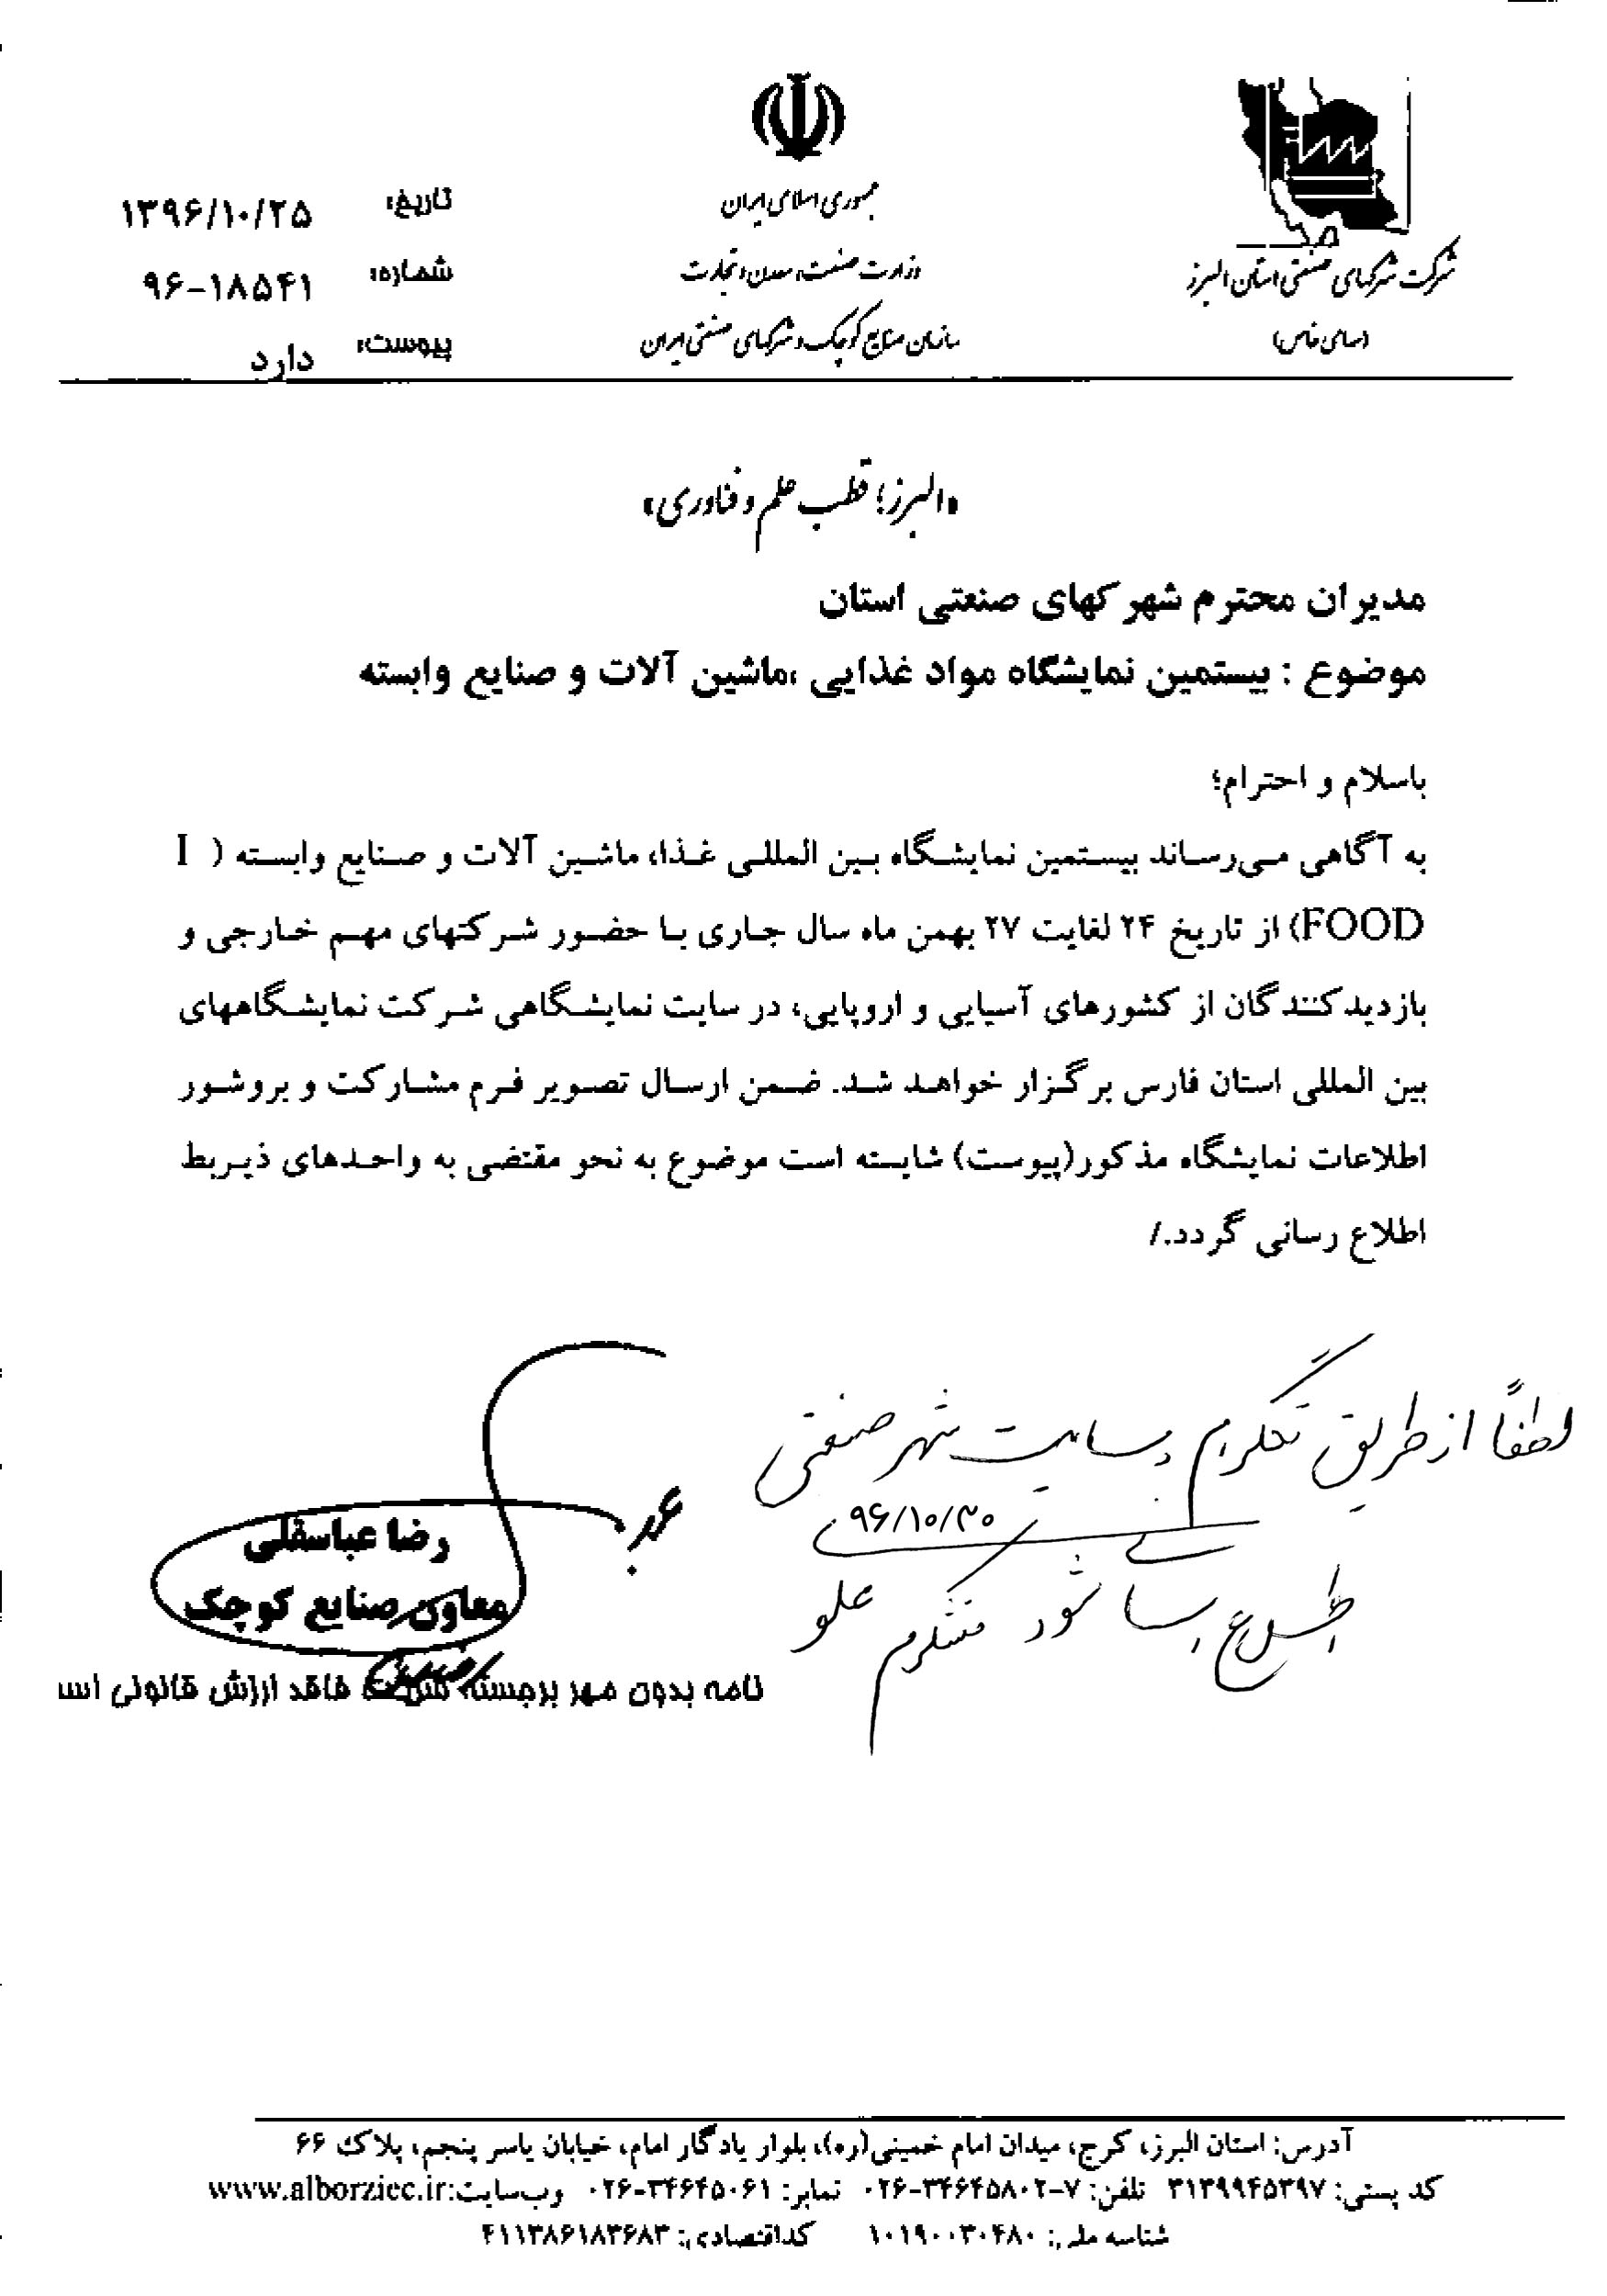 شرکت شهرکهای صنعتی استان البرز
(سهامی خاص)
جمهوری اسلامی ایران
وزارت صنعت، معدن و تجارت
سازمان صنایع کوچک و شهرکهای صنعتی ایران
تاریخ: ۱۳۹۶/۱۰/۲۵
شماره: ۹۶-۱۸۵۴۱
پیوست: دارد
«البرز؛ قطب علم و فناوری»
مدیران محترم شهرکهای صنعتی استان
موضوع : بیستمین نمایشگاه مواد غذایی ،ماشین آلات و صنایع وابسته
باسلام و احترام؛
به آگاهی می‌رساند بیستمین نمایشگاه بین المللی غذا، ماشین آلات و صنایع وابسته ( I
FOOD) از تاریخ ۲۴ لغایت ۲۷ بهمن ماه سال جاری با حضور شرکتهای مهم خارجی و
بازدیدکنندگان از کشورهای آسیایی و اروپایی، در سایت نمایشگاهی شرکت نمایشگاههای
بین المللی استان فارس برگزار خواهد شد. ضمن ارسال تصویر فرم مشارکت و بروشور
اطلاعات نمایشگاه مذکور(پیوست) شایسته است موضوع به نحو مقتضی به واحدهای ذیربط
اطلاع رسانی گردد./
لطفاً از طریق تلگرام و سایت شهر صنعتی
اطلاع رسانی شود متشکرم
۹۶/۱۰/۳۰
رضا عباسقلی
معاون صنایع کوچک
نامه بدون مهر برجسته شرکت فاقد ارزش قانونی اس
آدرس: استان البرز، کرج، میدان امام خمینی(ره)، بلوار یادگار امام، خیابان یاسر پنجم، پلاک ۶۶
کد پستی: ۳۱۳۹۹۴۵۳۹۷ تلفن: ۷-۰۲۶-۳۴۶۴۵۸۰۲ نمابر: ۰۲۶-۳۴۶۴۵۰۶۱ وب‌سایت:www.alborziec.ir
شناسه ملی: ۱۰۱۹۰۰۳۰۴۸۰ کداقتصادی: ۴۱۱۳۸۶۱۸۳۶۸۳